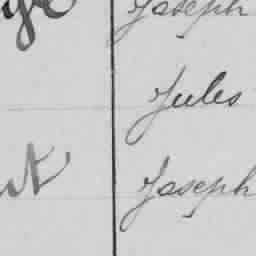 Joseph
Jules
Joseph